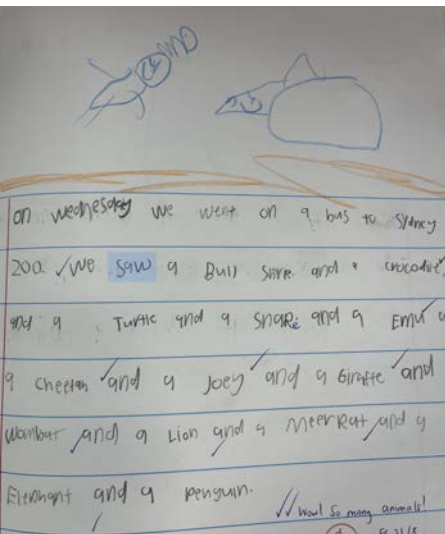 on wednesday we went on a bus to Sydney
zoo. we saw a Bull and a crocodile
and a Turtle and a snake and a Emu
a cheetah and a Joey and a Giraffe and
wambat and a Lion and a meerkat and a
Elephant and a penguin.
wow! So many animals!